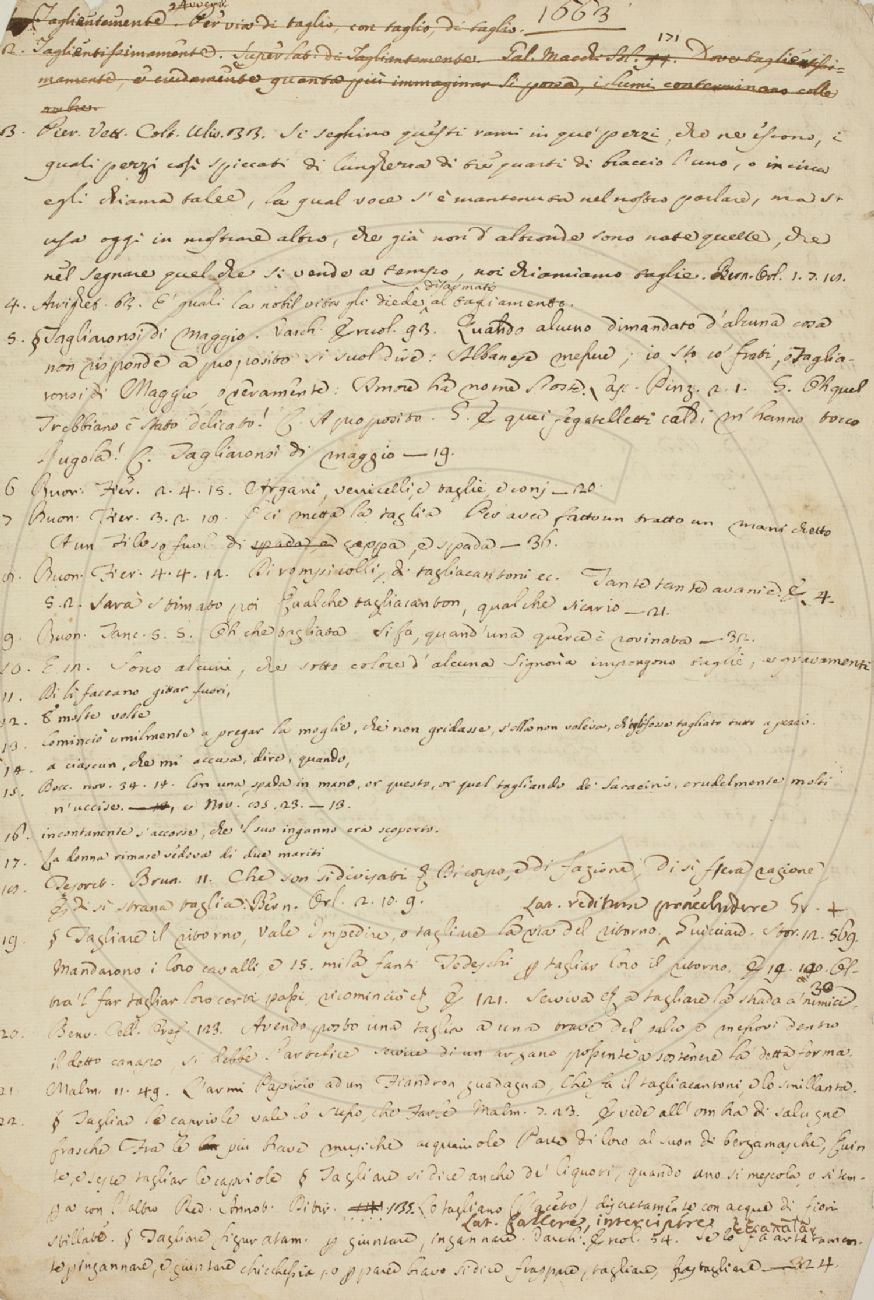 1663
Avverb.
1. Taglientemente. Per via di taglio, con taglio, di taglio.
2. Taglientissimamente. Superlat. di Taglientemente. Gal. Macch. Sol. 171. Dove taglientissi-
mamente, e crudamente quanto più immaginar si possa, i lumi conterminano colle
ombre.
3. Pier. Vett. Colt. Uliv. 33. Si seghino questi rami in que' pezzi, che ne escono, i
quali pezzi così spiccati di lunghezza di tre quarti di braccio l'uno, o in circa
egli chiama talee, la qual voce s'è mantenuta nel nostro parlare, ma s'
usa oggi in mostrare altro, che già non d'altronde sono nate quelle, che
nel segnare quel che si vende a tempo, noi chiamiamo taglie. Bern. Orl. 1. 7. 18.
disarmato
4. 63. E' quali la nobil vita gli diede al tagliamento.
5. § Tagliaronsi di Maggio. Varch. Ercol. 93. Quando alcuno dimandato d'alcuna cosa
non risponde a proposito si suol dire: Albanese messere; io sto co' frati, o Taglia-
ronsi di Maggio overamente: Amore ha nome l'oste. Pinz. 2. 1. G. Oh quel
Trebbiano è stato delicato! C. A proposito. G. E quei fegatelletti caldi m'hanno tocco
l'ugola! C. Tagliaronsi di maggio — 19.
6 Buon. Fier. 2. 4. 15. Argani, verricelli, e taglie, e conj — 20
7 Buon. Fier. 3. 2. 18. E ci metta la taglia Per aver fatto un tratto un manichetto
A un Filosofuol di spada e cappa, e spada — 36.
8. Buon. Fier. 4. 4. 12. Di rompicolli, di tagliacantoni ec. Tante tante avanie. E 4.
5. 2. Sarà stimato poi Qualche tagliacanton, qualche sicario — 21.
9. Buon. Tanc. 5. 5. Oh che tagliata si fa, quand'una quercia è rovinata — 32.
10. E 12. Sono alcuni, che sotto colore d'alcuna Signoria impongono taglie, e gravamenti
11. Di lì faccano gittar fuori,
12. E molte volte
13. Cominciò umilmente a pregar la moglie, che non gridasse, s'ella non voleva, ch'egli fosse tagliato tutto a pezzi.
14. a ciascun, che mi accusa, dire, quando,
15. Bocc. nov. 34. 14. Con una spada in mano, or questo, or quel tagliando de' Saracini, crudelmente molti
n'uccise. — e Nov. 23. — 13.
16. incontanente s'accorse, che 'l suo inganno era scoperto.
17. La donna rimase vedova di due mariti
18. Tesoret. Brun. 11. Che son sì divisati Di corpo, e di fazione, Di sì fiera ragione,
E di sì strana taglia. Bern. Orl. 2. 10. 9. Lat. reditum praecludere Gr. +
19. § Tagliare il ritorno, vale Impedire, o tagliare la via del ritorno. Guicciard. Stor. 12. 569.
Mandarono i loro cavalli, e 15. mila fanti Tedeschi p tagliar loro il ritorno. E 19. 120. Ol-
30
tra 'l far tagliar loro certi passi, ricominciò ec. E 121. Serviva ec. a tagliare la strada a' nimici.
20. Benv. Cell. Oref. 123. Avendo posto una taglia a una trave del palco e messovi dentro
il detto canapo, si debbe l'artefice servire di un argano possente a sostenere la detta forma.
21. Malm. 11. 49. L'armi Papirio ad un Fiandron guadagna, Che fa il tagliacantoni, e lo smillanta.
22. § Tagliar le capriole vale lo stesso, che Farle Malm. 7. 23. E vede all'ombra di salvigne
frasche Fra le più brave musiche acquaiuole Parte di loro al suon di bergamasche, Quin-
te, e seste tagliar le capriole § Tagliare si dice anche de' liquori, quando uno si mescola o si tem-
pra con l'altro Red. Annot. Ditir. 135. Lo tagliano (l'aceto) discretamente con acque di fiori
Lat. fallere, intercipere
stillate. § Tagliare figuratam. p giuntare, ingannare. Varch. Ercol. 54. Se lo fa artatamen-
te p ingannare, e giuntare chicchessia, o p parer bravo si dice frappare, tagliare, frastagliare — 224.